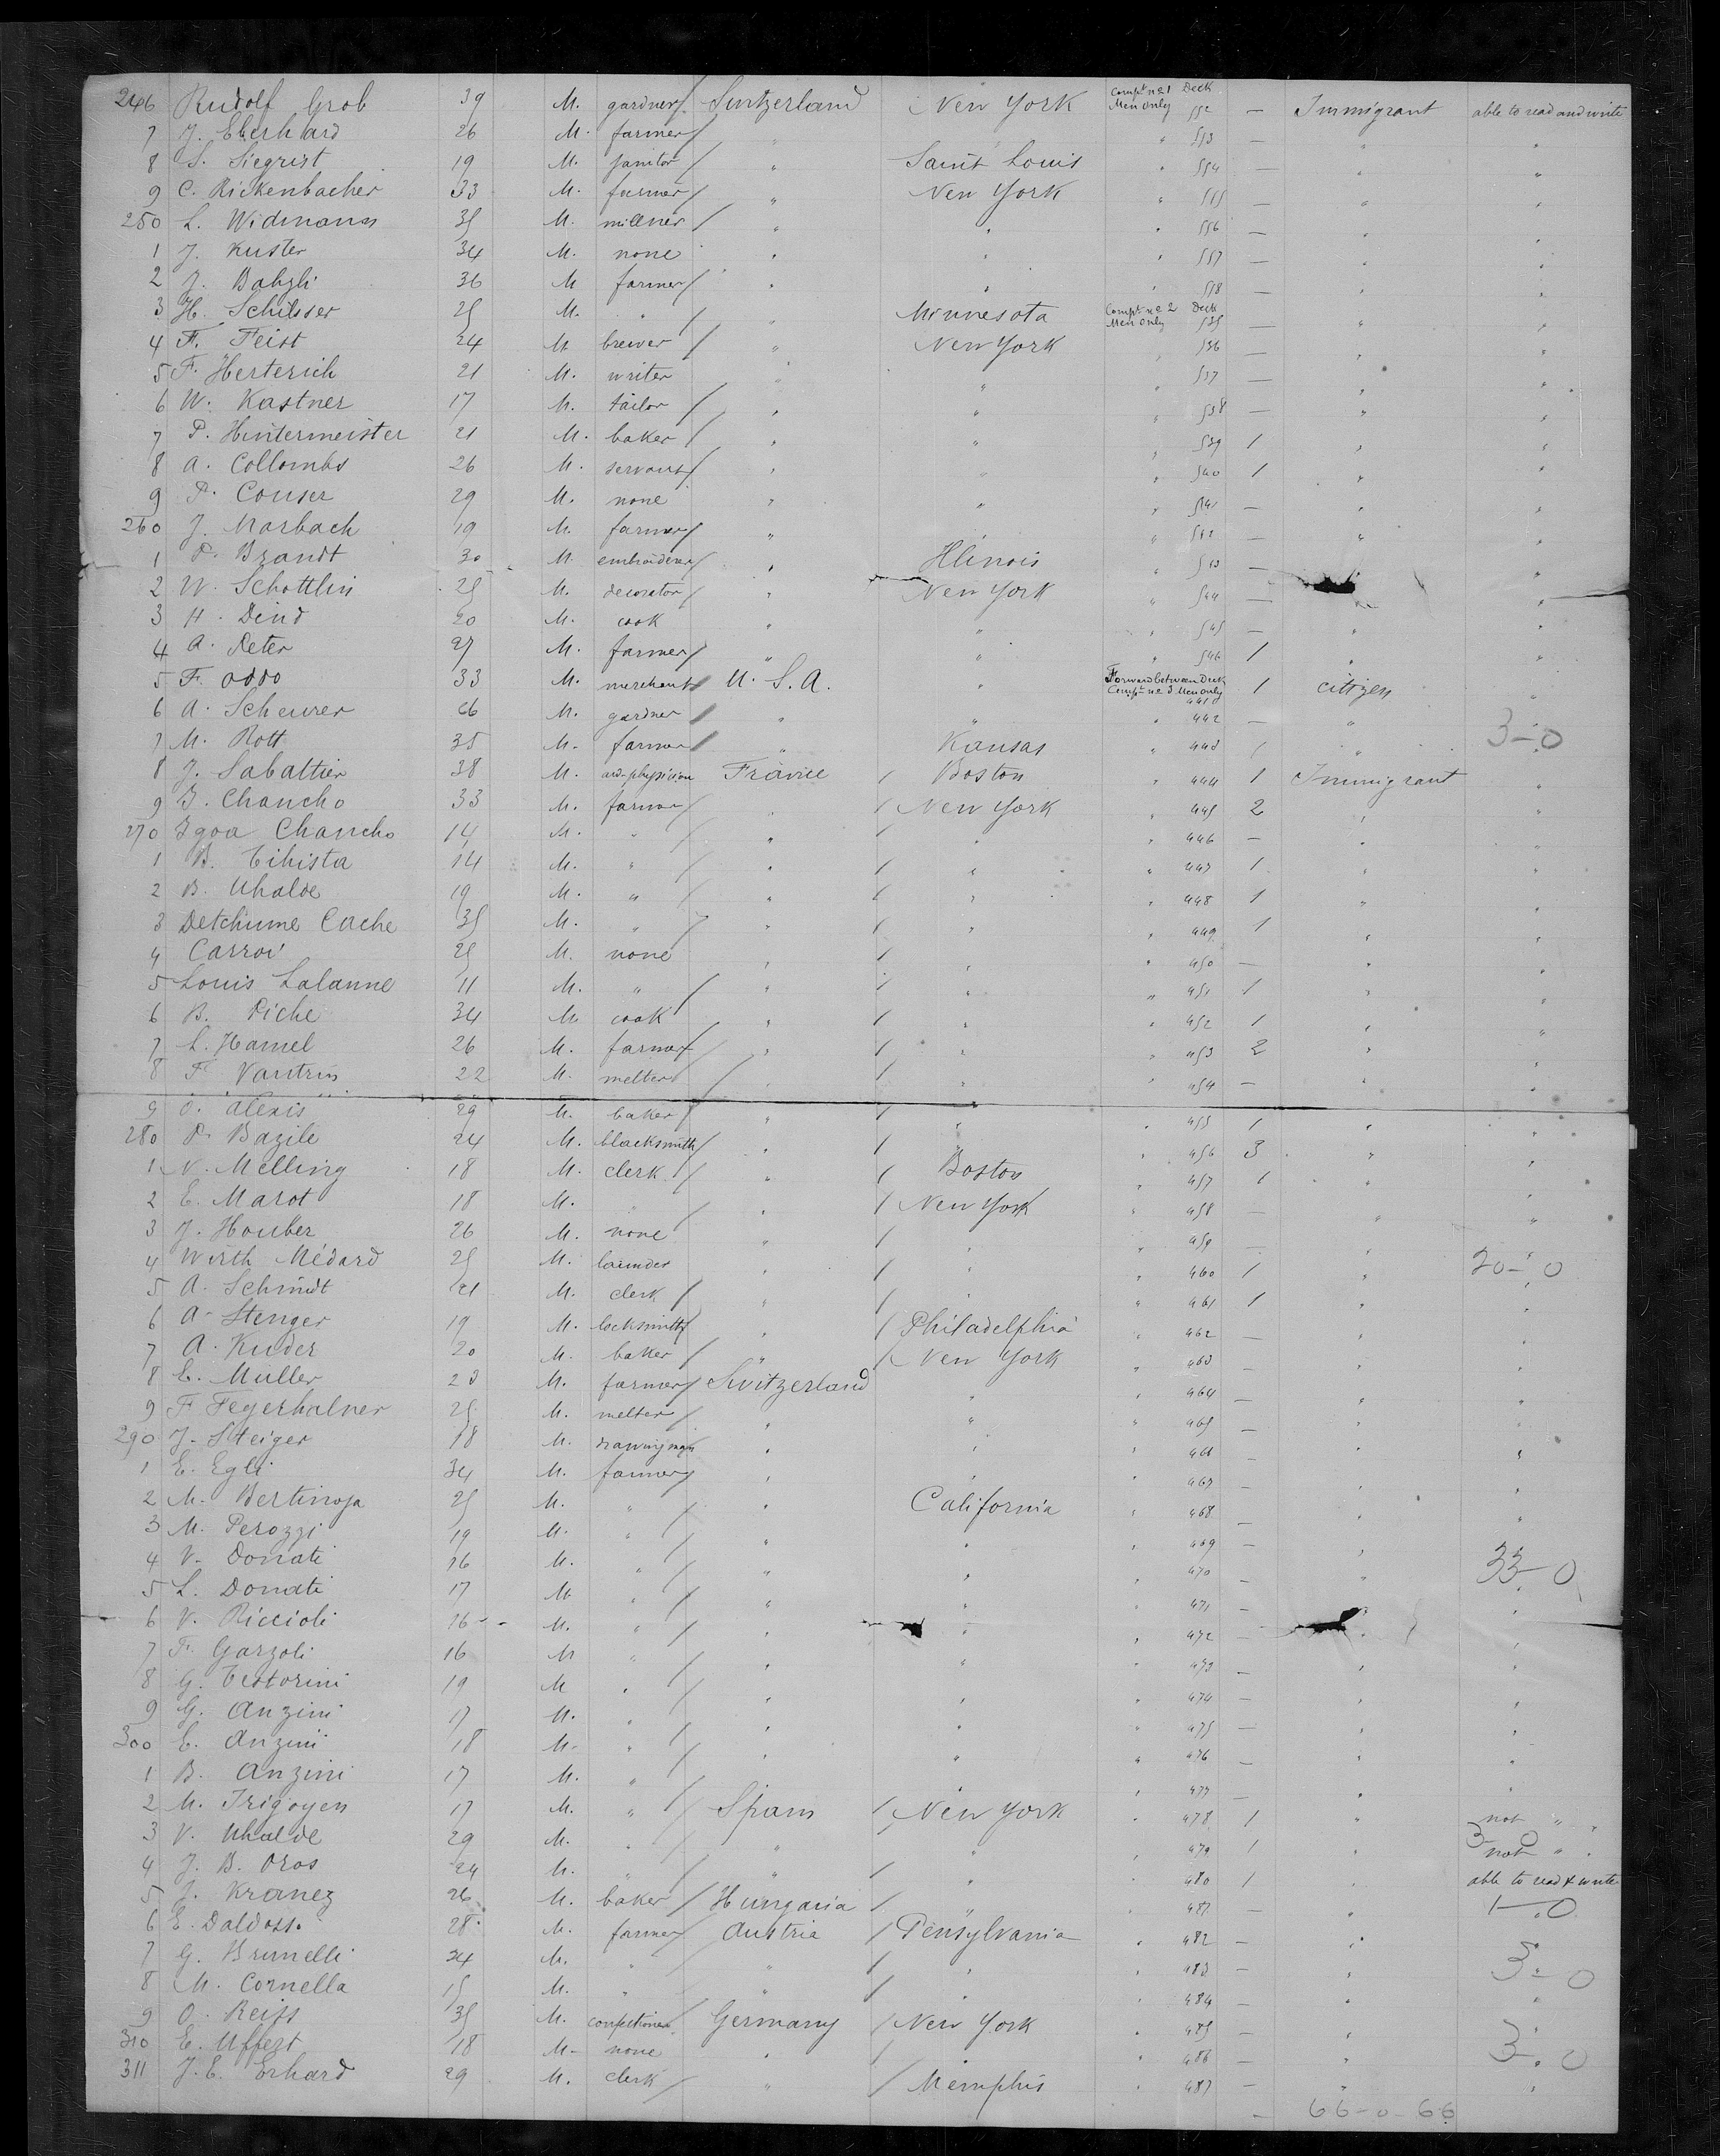 246 Rudolf Grob 39 M. gardner Switzerland New York Compt no 1 Men only Deck 552 — Immigrant able to read and write
7 J. Eberhard 26 M. farmer " " " 553 — " "
8 S. Siegrist 19 M. janitor " Saint Louis " 554 — " "
9 C. Rickenbacher 33 M. farmer " New York " 555 — " "
250 L. Widmann 35 M. millner " " " 556 — " "
1 J. Kuster 34 M. none " " " 557 — " "
2 J. 36 M farmer " " " 558 — " "
3 H. Schilsser 25 M. " " Minnesota Compt no 2 Men only Deck 535 — " "
4 F. Feist 24 M brewer " New York " 536 — " "
5 F. Herterich 21 M. writer " " " 537 — " "
6 W. Kastner 17 M. tailor " " " 538 — " "
7 P. Hintermeister 21 M. baker " " " 539 1 " "
8 A. Collombs 26 M. servant " " " 540 1 " "
9 P. Couser 29 M. none " " " 541 — " "
260 J. Marbach 19 M. farmer " " " 542 — " "
1 P. Brandt 30 M. embroiderer " Illinois " 543 — " "
2 W. Schottlin 25 M. decorator " New York " 544 — "
3 H. Dind 20 M. cook " " " 545 — " "
4 A. Peter 27 M. farmer " " " 546 1 " "
5 F. Oddo 33 M. merchant U. S. A. " Forward between Deck Compt no 3 Men only 441 1 citizen "
6 A. Scheurer 66 M. gardner " " " 442 — " "
7 M. Rott 35 M. farmer " Kansas " 443 1 " 3-0
8 J. Sabattier 38 M. physician France Boston " 444 1 Immigrant "
9 J. Chancho 33 M. farmer " New York " 445 2 " "
270 Igoa Chancho 14 M. " " " " 446 — " "
1 B. Tihista 14 M. " " " " 447 1 " "
2 B. Uhalde 19 M. " " " " 448 1 " "
3 Detchume Cache 35 M. " " " " 449 1 " "
4 Carroi 25 M. none " " " 450 — " "
5 Louis Lalanne 11 M. " " " " 451 1 " "
6 B. Piche 34 M. cook " " " 452 1 " "
7 L. Hamel 26 M. farmer " " " 453 2 " "
8 F. Vautrin 22 M. melter " " " 454 — " "
9 O. Alexis 29 M. baker " " " 455 1 " "
280 P. Bazile 24 M. blacksmith " " " 456 3 " "
1 N. Melling 18 M. clerk " Boston " 457 1 " "
2 E. Marot 18 M. " " New York " 458 — " "
3 J. Houber 26 M. none " " " 459 — " "
4 Wirth Médard 25 M. launder " " " 460 1 " 20-0
5 A. Schmidt 21 M. clerk " " " 461 1 " "
6 A. Stenger 19 M. locksmith " Philadelphia " 462 — " "
7 A. Kuder 20 M. baker " New York " 463 — " "
8 E. Muller 23 M. farmer Switzerland " " 464 — " "
9 F. Fegerhalner 25 M. melter " " " 465 — " "
290 J. Steiger 18 M. drawingman " " " 466 — " "
1 E. Egli 34 M. farmer " " " 467 — " "
2 M. Bertinoja 25 M. " " California " 468 — " "
3 M. Perozzi 19 M. " " " " 469 — " "
4 V. Donati 16 M. " " " " 470 — " 33-0
5 L. Donati 17 M. " " " " 471 — " "
6 V. Riccioli 16 M. " " " " 472 — " "
7 F. Garzoli 16 M " " " " 473 — " "
8 G. Testorini 19 M " " " " 474 — " "
9 G. Anzini 17 M. " " " " 475 — " "
300 E. Anzini 18 M. " " " " 476 — " "
1 B. Anzini 17 M. " " " " 477 — " "
2 M. Irigoyen 17 M. " Spain New York " 478 1 " not "
3 V. Uhalde 29 M. " " " " 479 1 " 3-0 not "
4 J. B. Oros 24 M. " " " " 480 1 " able to read & write
5 J. Kranez 26 M. baker Hungaria " " 481 — " 1-0
6 E. Daldoss 28 M. farmer Austria Pensylvania " 482 — " "
7 G. Brunelli 24 M. " " " " 483 — " 3-0
8 M. Cornella 15 M. " " " " 484 — " "
9 O. Reiss 35 M. confectioner Germany New York " 485 — " "
310 E. Uffert 18 M. none " " " 486 — " 3-0
311 J. E. Erhard 29 M. clerk " Memphis " 487 — " "
— 66-0-66